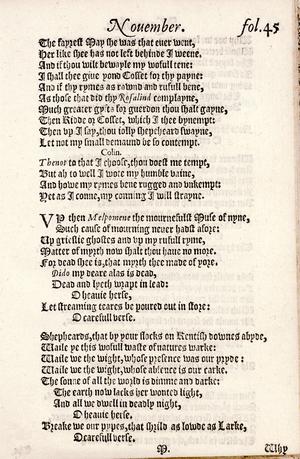 Nouember. fol.45
The fayrest May she was that euer went,
Her like shee has not left behinde I weene.
And if thou wilt bewayle my wofull tene:
I shall thee giue yond Cosset for thy payne:
And if thy rymes as rownd and rufull bene,
As those that did thy Rosalind complayne,
Much greater gyfts for guerdon thou shalt gayne,
Then Kidde or Cosset, which I thee bynempt:
Then vp I say, thou iolly shepeheard swayne,
Let not my small demaund be so contempt.
Colin.
Thenot to that I choose, thou doest me tempt,
But ah to well I wote my humble vaine,
And howe my rymes bene rugged and vnkempt:
Yet as I conne, my conning I will strayne.
VP then Melpomene the mournefulst Muse of nyne,
Such cause of mourning neuer hadst afore:
Vp grieslie ghostes and vp my rufull ryme,
Matter of myrth now shalt thou haue no more.
For dead shee is, that myrth thee made of yore.
Dido my deare alas is dead,
Dead and lyeth wrapt in lead:
O heauie herse,
Let streaming teares be poured out in store:
O carefull verse.
Shepheards, that by your flocks on Kentish downes abyde,
Waile ye this wofull waste of natures warke:
Waile we the wight, whose presence was our pryde:
Waile we the wight, whose absence is our carke.
The sonne of all the world is dimme and darke:
The earth now lacks her wonted light,
And all we dwell in deadly night,
O heauie herse.
Breake we our pypes, that shrild as lowde as Larke,
O carefull verse.
M. Why